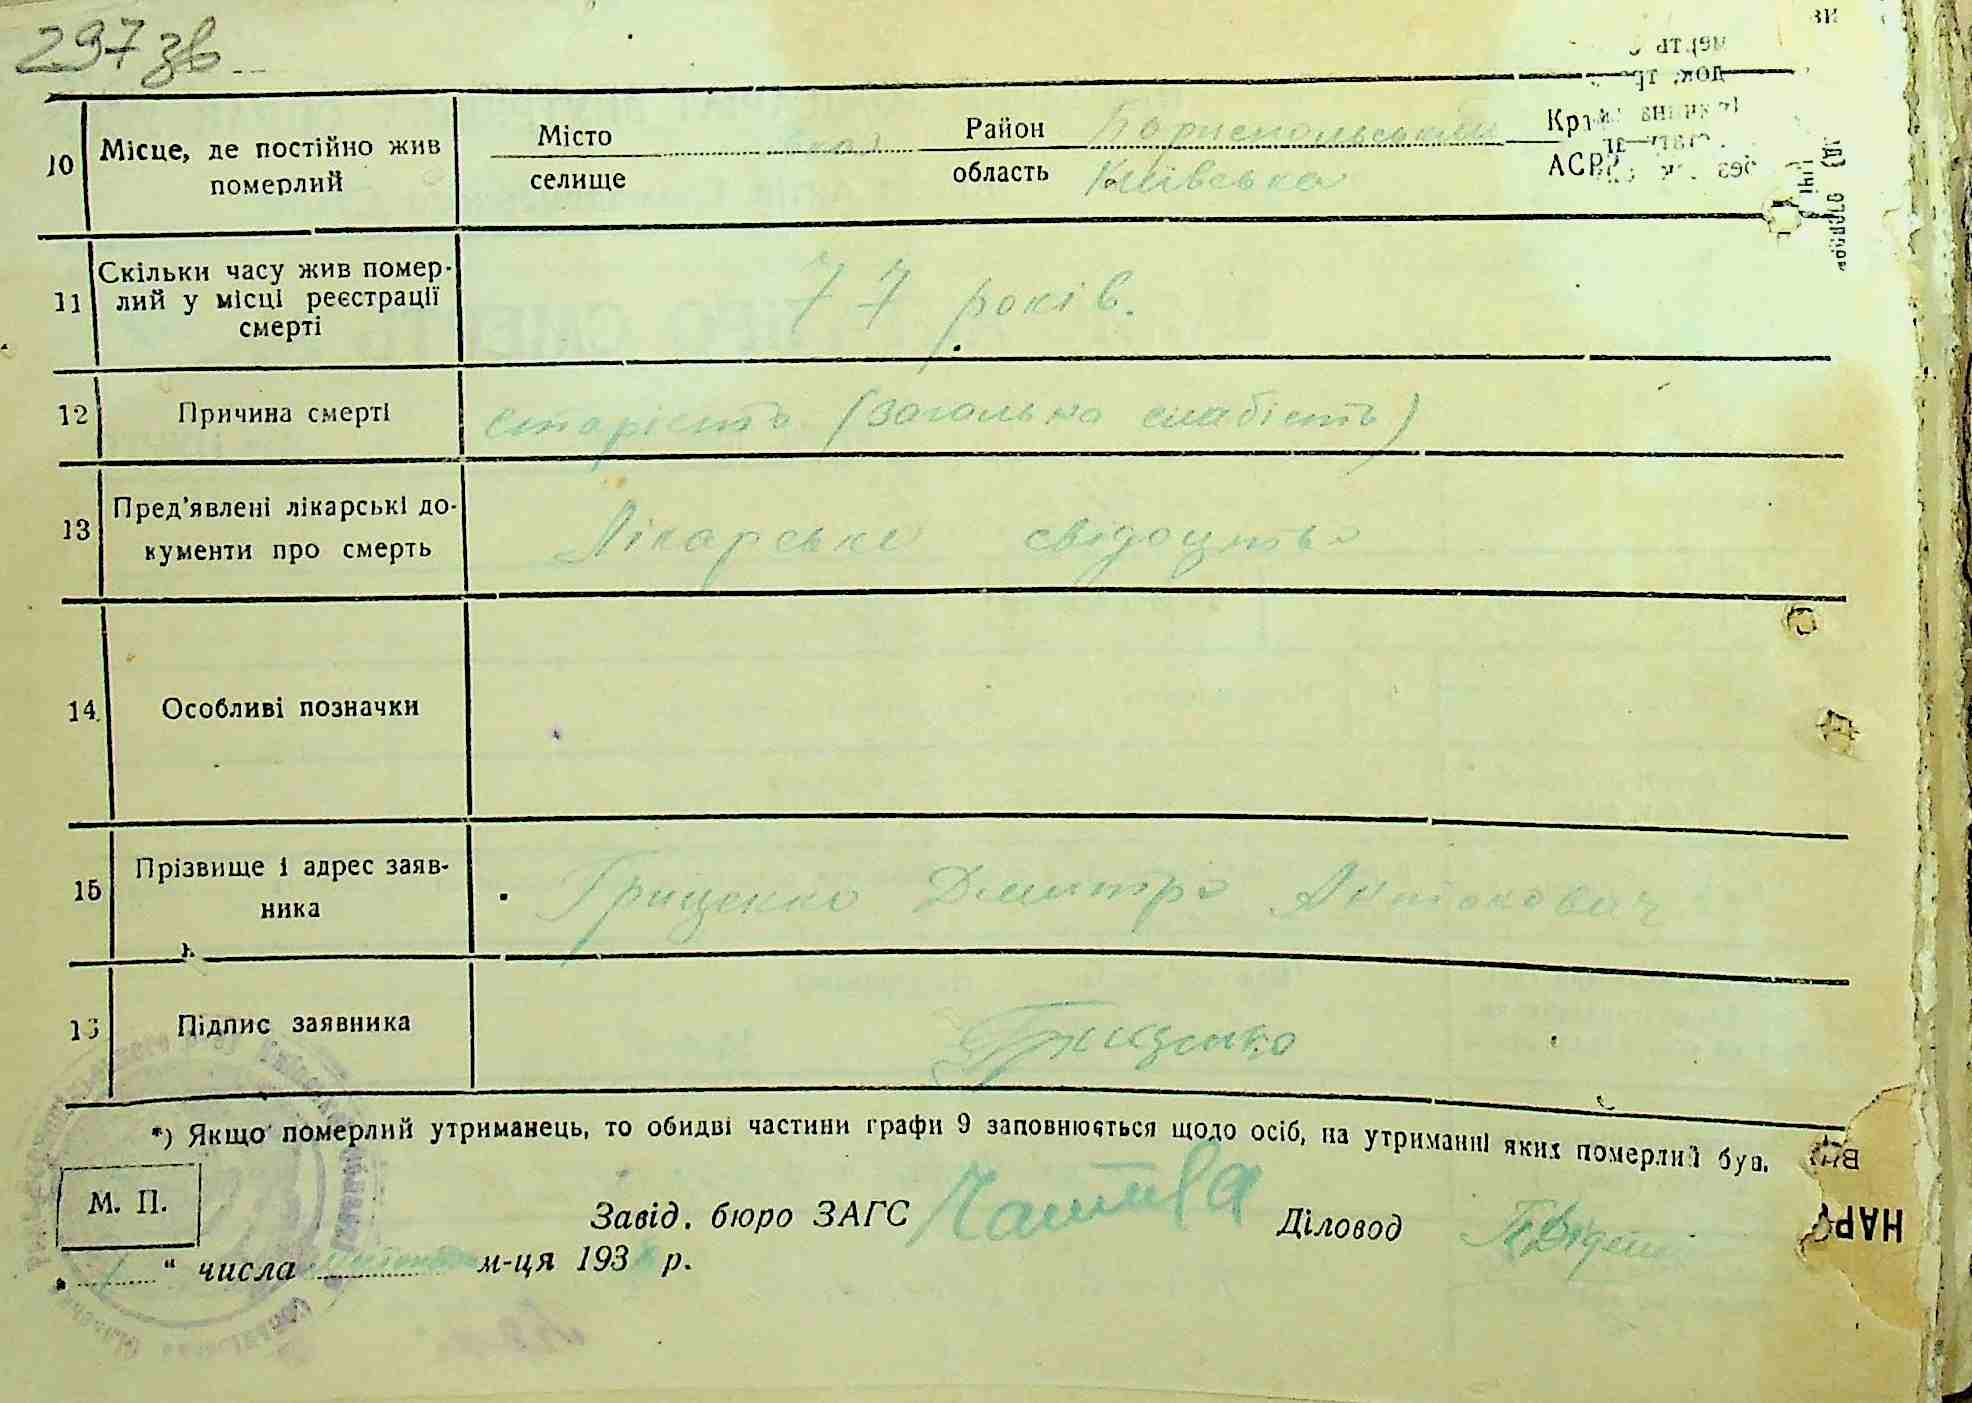 297 зв
10 Місце, де постійно жив померлий
Місто селище
Район Бориспольський
область Київська
АСРР
11 Скільки часу жив помер-
лий у місці реєстрації
смерті
77 років.
12 Причина смерті
старість (загальна слабість)
13 Пред'явлені лікарські до-
кументи про смерть
Лікарське свідоцтво
14. Особливі позначки
15 Прізвище і адрес заяв-
ника
Гриценко Дмитро Антонович
16 Підпис заявника
Гриценко
*) Якщо померлий утриманець, то обидві частини графи 9 заповнюється щодо осіб, на утриманні яких померлий був.
М. П.
Завід. бюро ЗАГС
Діловод
„ “ числа м-ця 193 р.